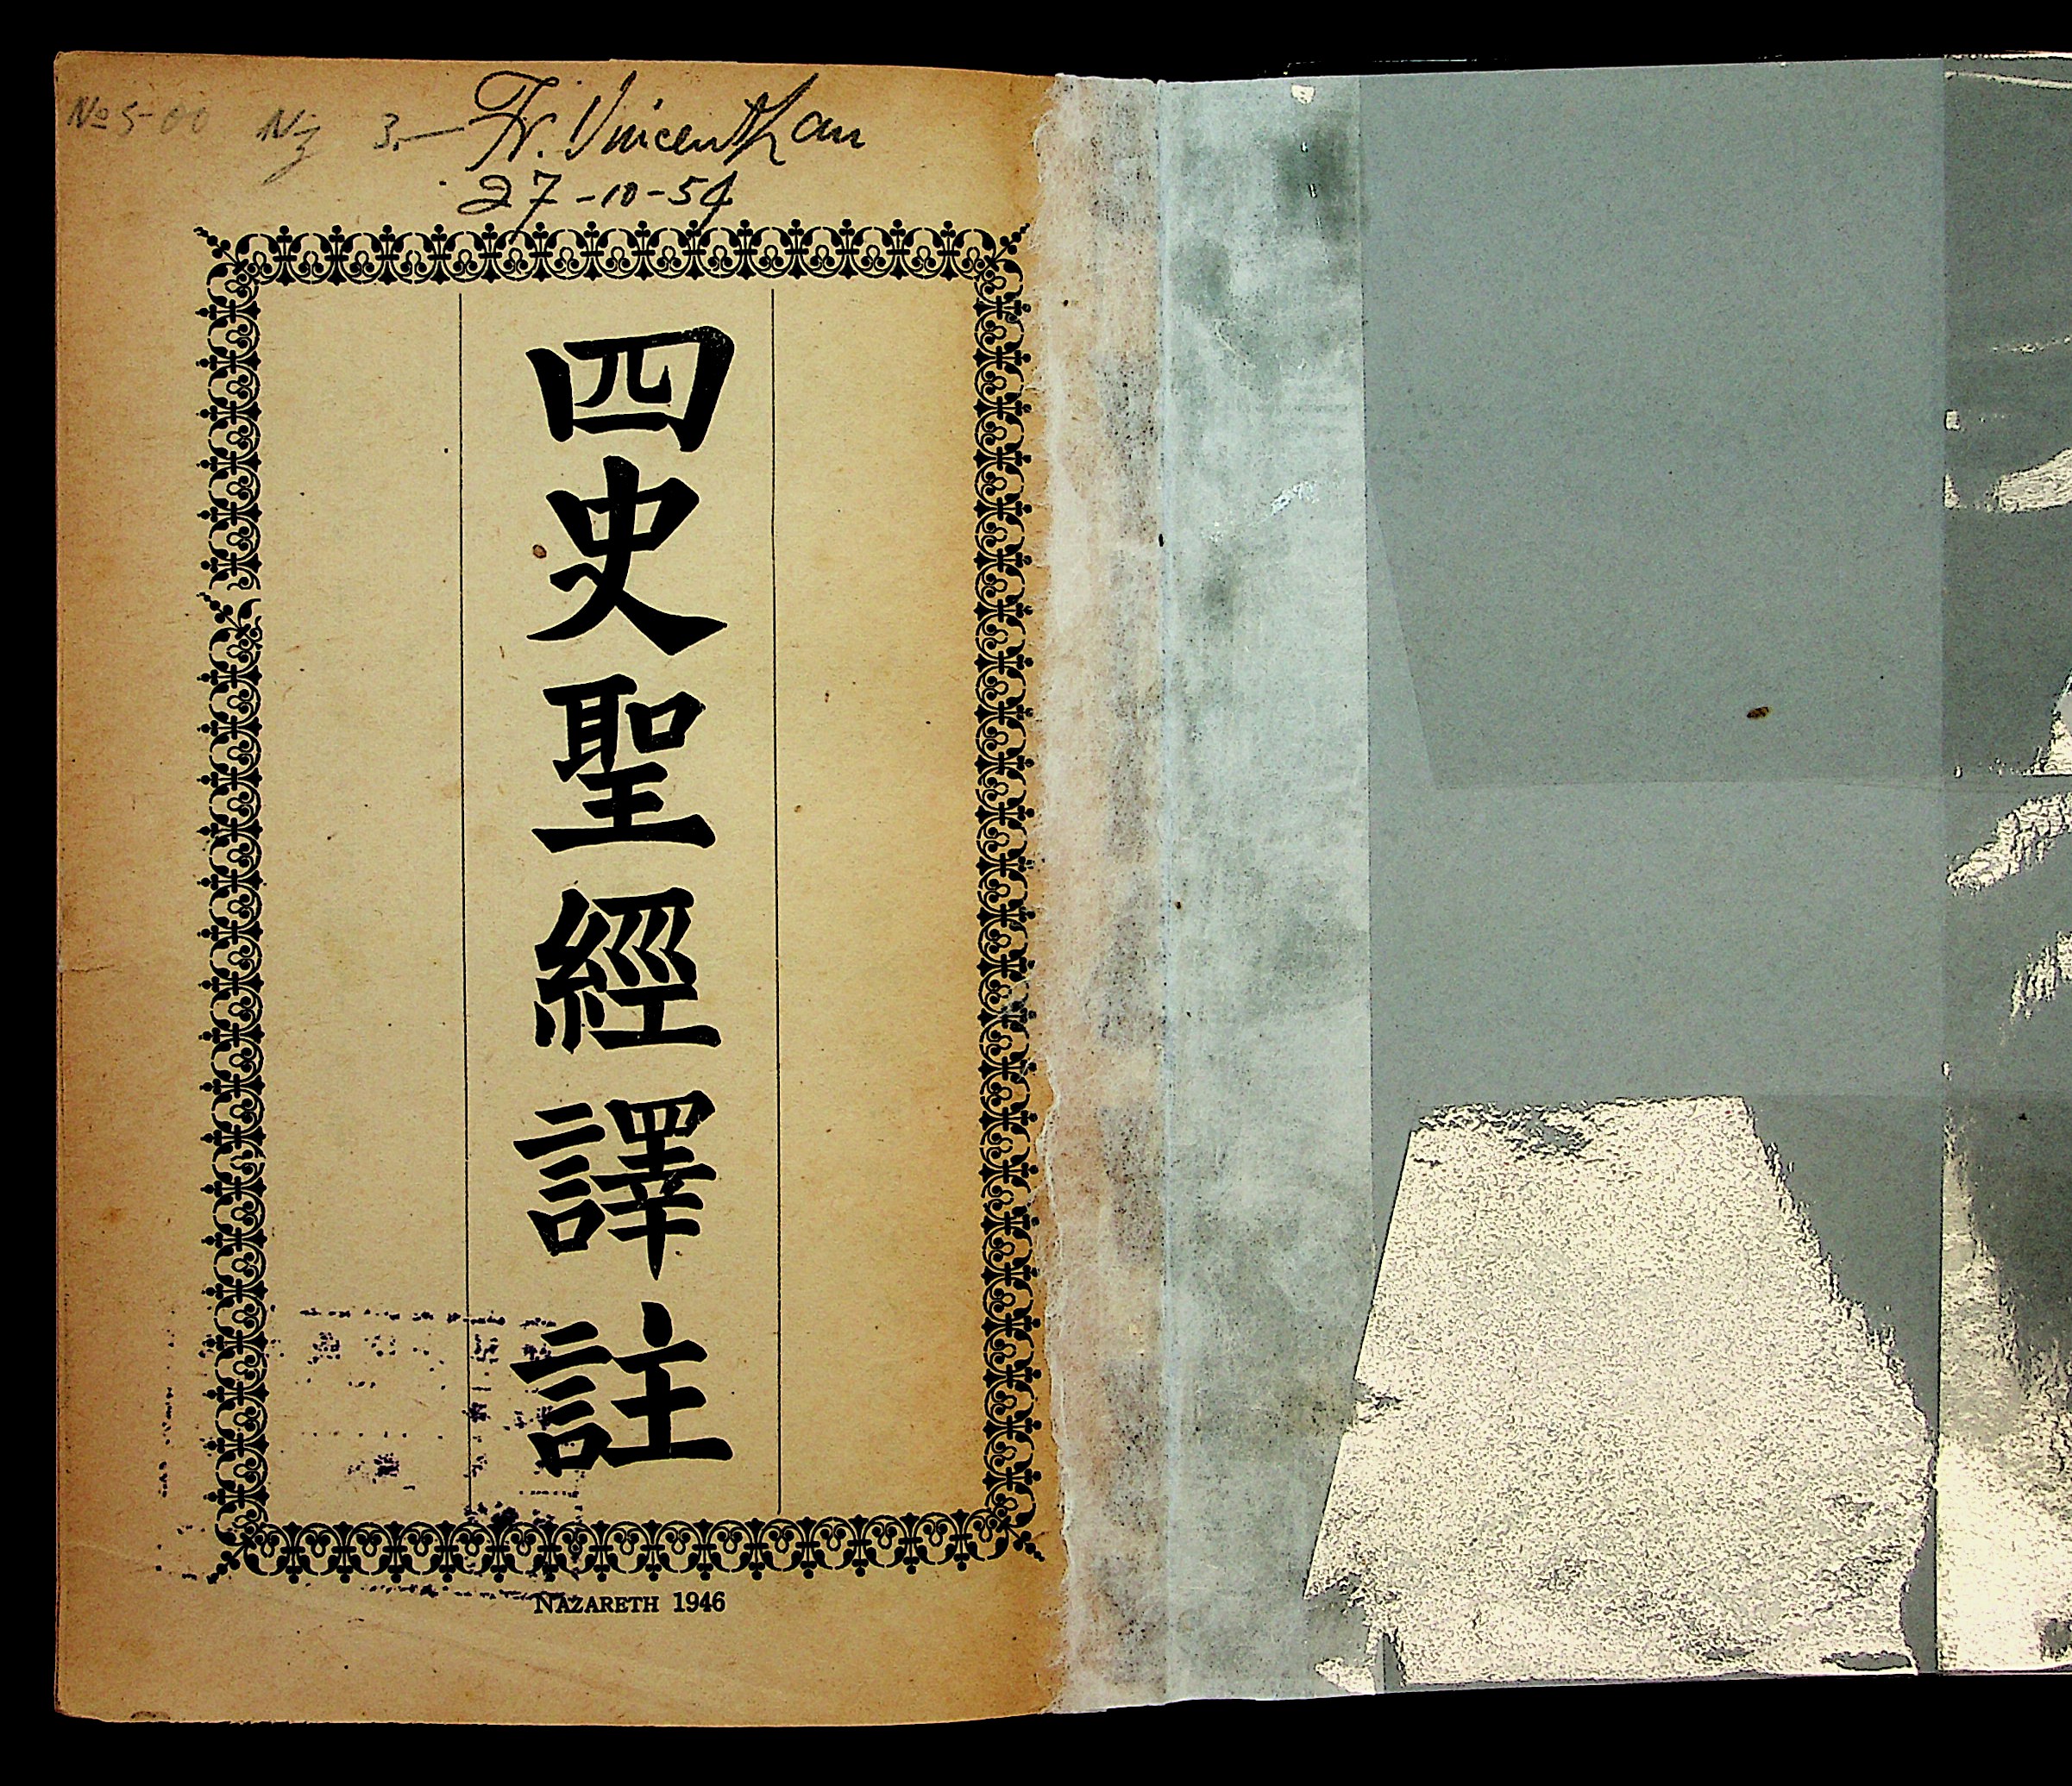 No 5-00 Nz 3.— Fr. Vincent Lau
27-10-54
四史聖經譯註
NAZARETH 1946